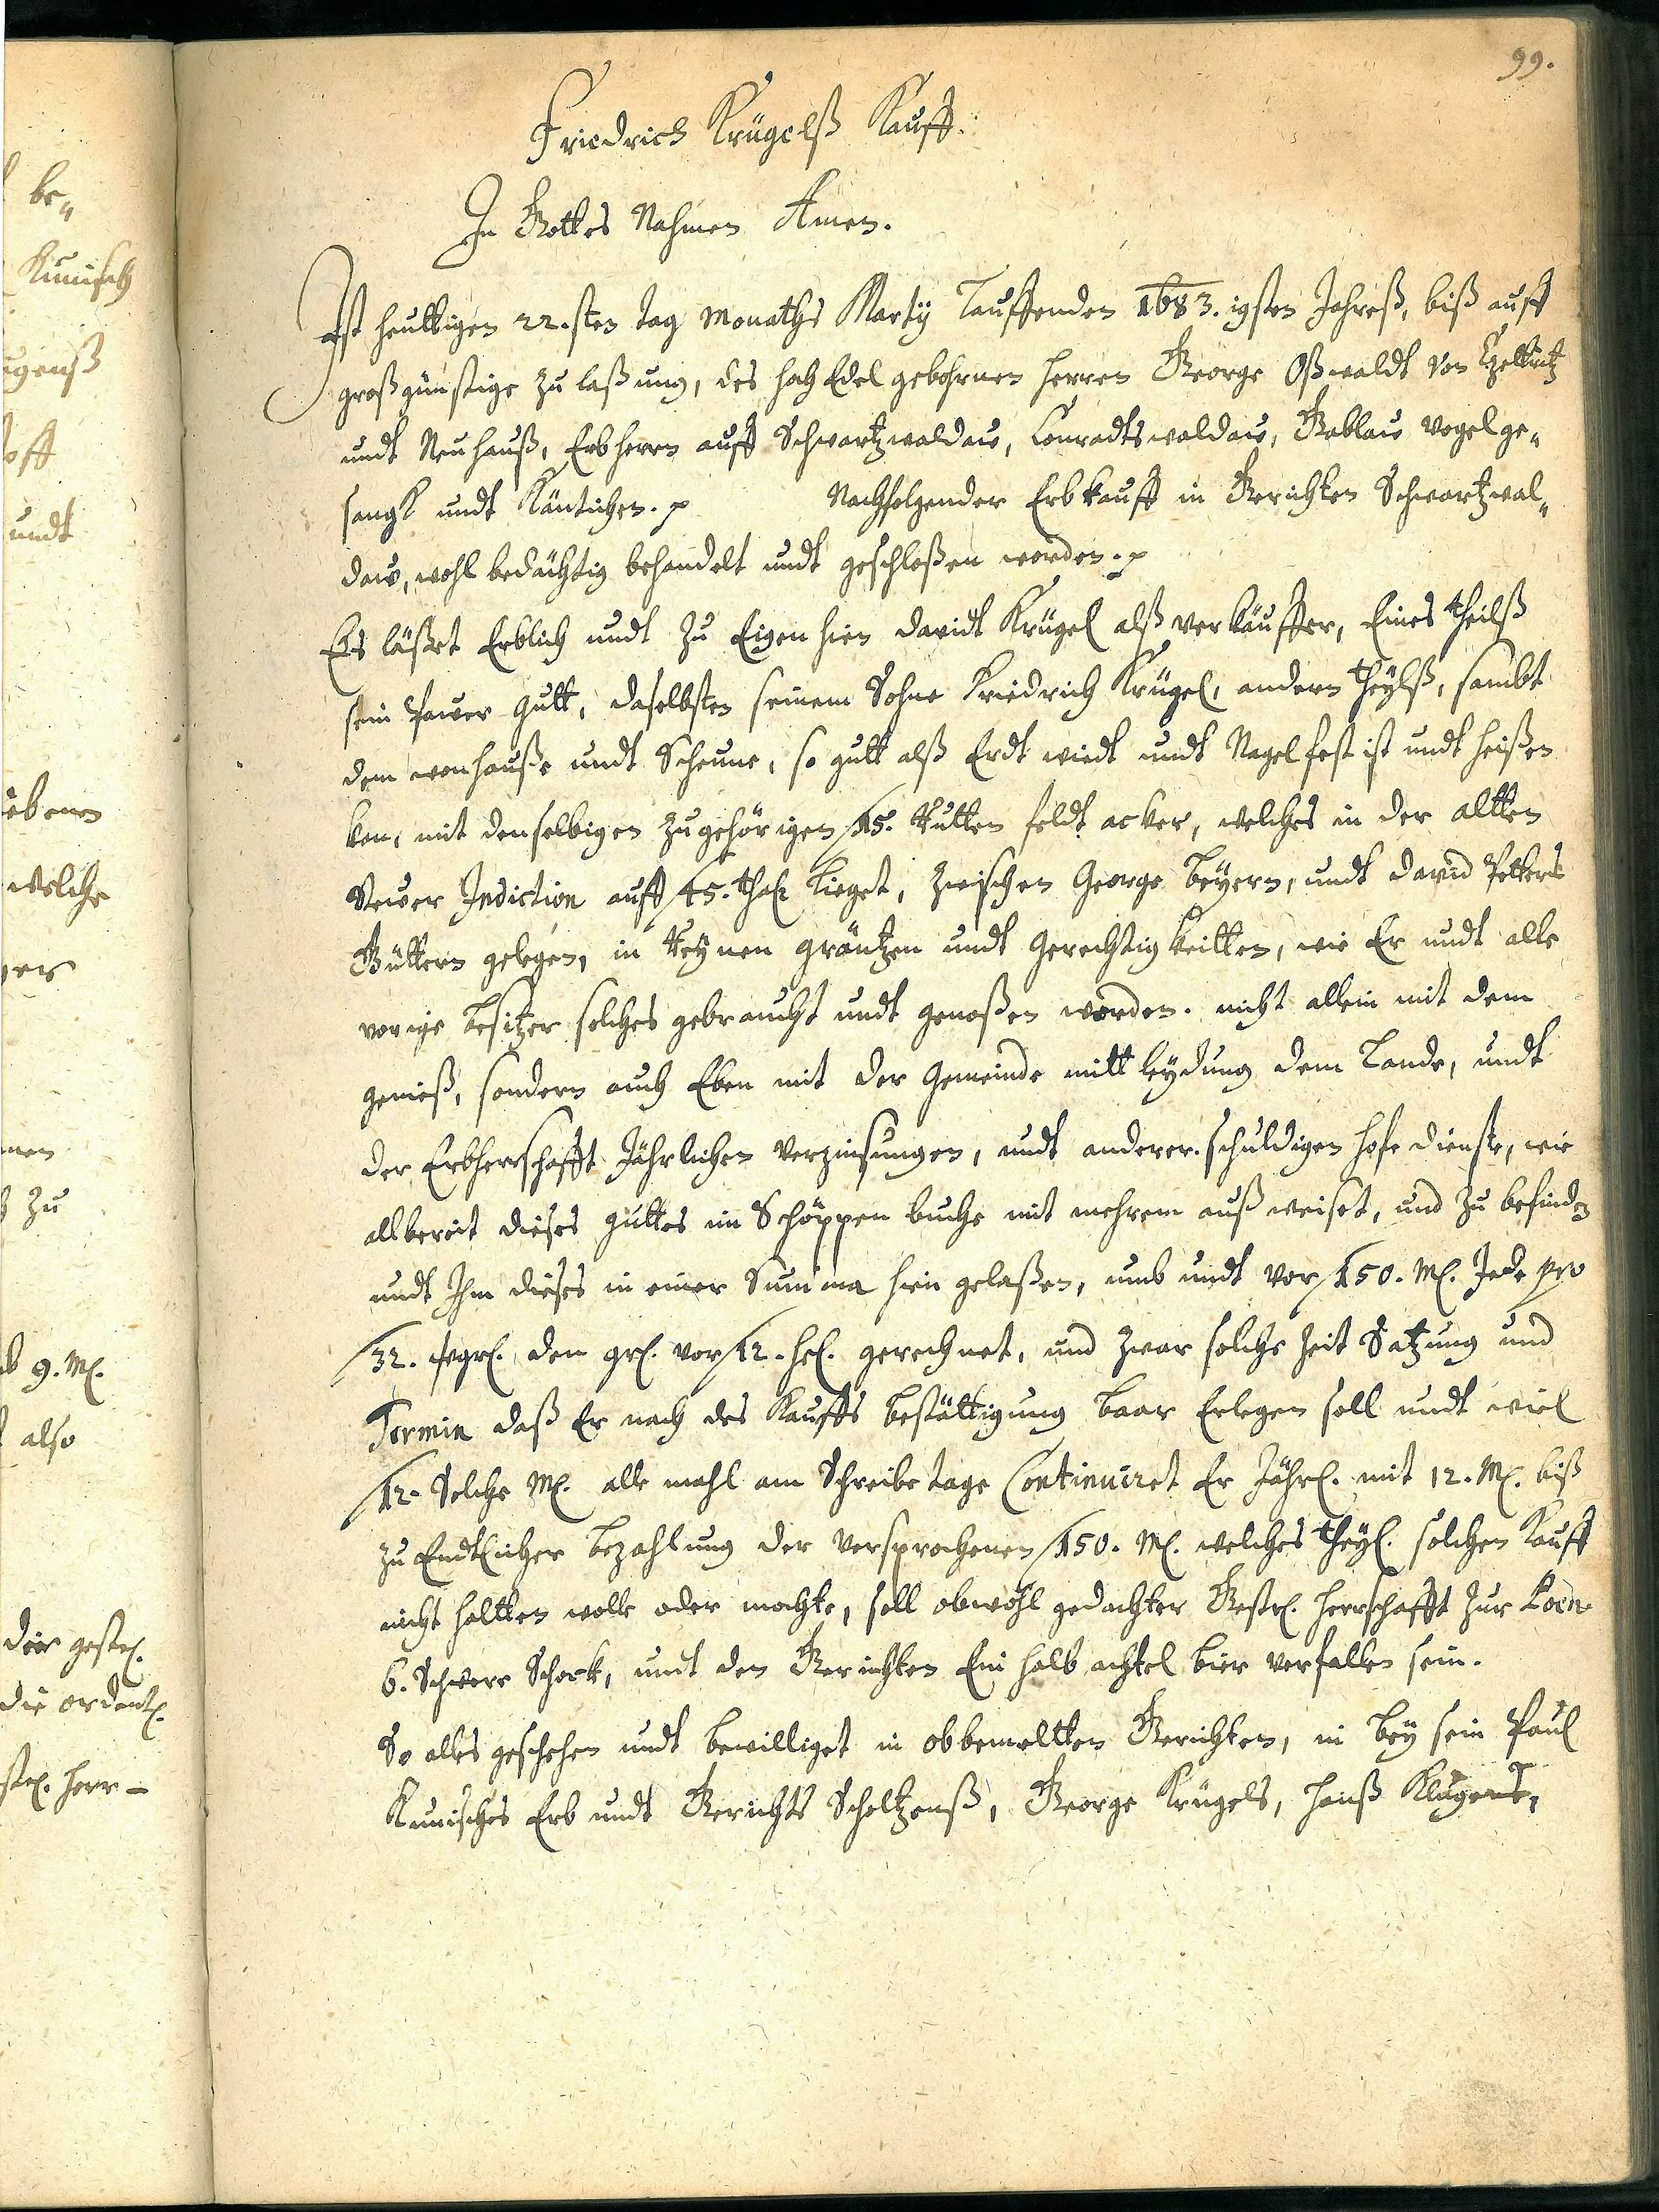 be„
Kunisch
igenß
off
undt
iebenen
welche
ger
nen
zu
9. M[.
also
der gestr[.
die ordentl[.
str[. Herr -
99.
Friedrich Krügelß Kauff.
In Gottes Nahmen Amen.
Ist heuttigen 22.sten tag Monaths Marty Lauffenden 1683.igsten Jahreß, biß auff
großgünstige zu laßung, des hoch Edel gebohrnen Herren George Oßwaldt von Tzettritz
undt Neuhauß, Erbherrn auff Schwartzwaldaw, Conradtswaldaw, Gablaw Vogelge„
sangk undt Käntichen. p Nachfolgender Erbkauff in Gerichten Schwartzwal„
daw, wohl bedächtig behandelt undt geschloßen worden. p
Es läßet Erblich undt zu Eigen hien Davidt Krügel alß verkäuffer, Eines theilß
sein Pawer gutt, daselbsten seinem Sohne Friedrich Krügel, andern theylß, sambt
dem wonhauße undt Scheune, so gutt alß Erdt wiedt undt Nagelfest ist undt heißen
kan, mit denselbigen zugehörigen 15. Rutten feldt acker, welches in der altten
Stewer Indiction auff 45. thal[ Lieget, zwischen George Beyern, undt David Petters
Güttern gelegen, in Reynen gräntzen undt Gerechtigkeitten, wie Er undt alle
vorige Besitzer solches gebraucht undt genoßen worden. nicht allein mit dem
genieß, sondern auch Eben mit der Gemeinde mittleydung dem Lande, undt
der Erbherrschafft Jährlichen Verzinsungen, undt anderer schuldigen hofe dienste, wie
allbereit dieses guttes im Schöppen buche mit mehrem außweiset, und zu befinden
undt Ihm dieses in einer Summa hien gelaßen, umb undt vor 150. M[. Jede pro
32. wgr[. den gr[. vor 12. hl[. gerechnet, und zwar solche Zeit Satzung und
Termin daß Er nach des Kauffs Bestättigung baar Erlegen soll undt wiel
12. Solche M[. alle mahl am Schreibe tage Continuiret Er Jährl[. mit 12. M[. biß
zu Endtlicher Bezahlung der versprochenen 150. M[. welches theyl[. solchen Kauff
nicht haltten wolle oder mochte, soll obwohl gedachter Gestr[. Herrschafft zur Poen
6. Schwere Schock, undt den Gerichten Ein halb achtel bier verfallen sein.
So alles geschehen undt bewilliget in obbemeltten Gerichten, in bey sein Paul
Kunisches Erb undt Gerichts Scholtzenß, George Krügels, Hanß Klugent,